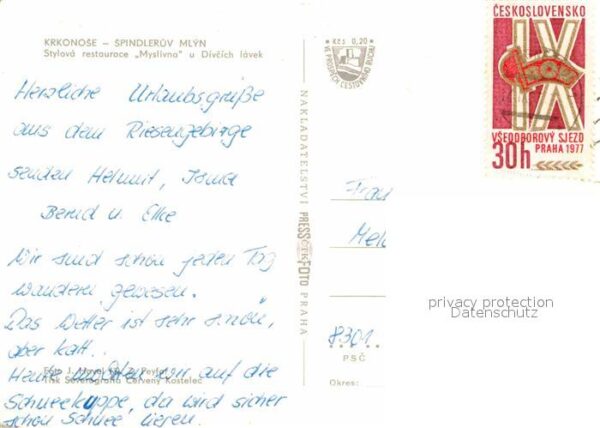 KRKONOŠE — ŠPINDLERŮV MLÝN
Stylová restaurace „Myslivna" u Dívčích lávek
Herzliche Urlaubsgrüße
aus dem Riesengebirge
senden Helmut, Irma
Bernd u. Elke
Wir sind schon jeden Tag
wandern gewesen.
Das Wetter ist sehr schön,
aber kalt.
Heute wollen wir auf die
Schneekuppe, da wird sicher
schon Schnee liegen.
Foto J.
Tisk Severografia Červený Kostelec
NAKLADATELSTVÍ PRESSFOTO PRAHA
ČTK
Kčs 0,20
VE PROSPĚCH CESTOVNÍHO RUCHU
ČESKOSLOVENSKO
IX
VŠEODBOROVÝ SJEZD
30h PRAHA 1977
Frau
Mel
privacy protection
Datenschutz
8301
PSČ
Okres: